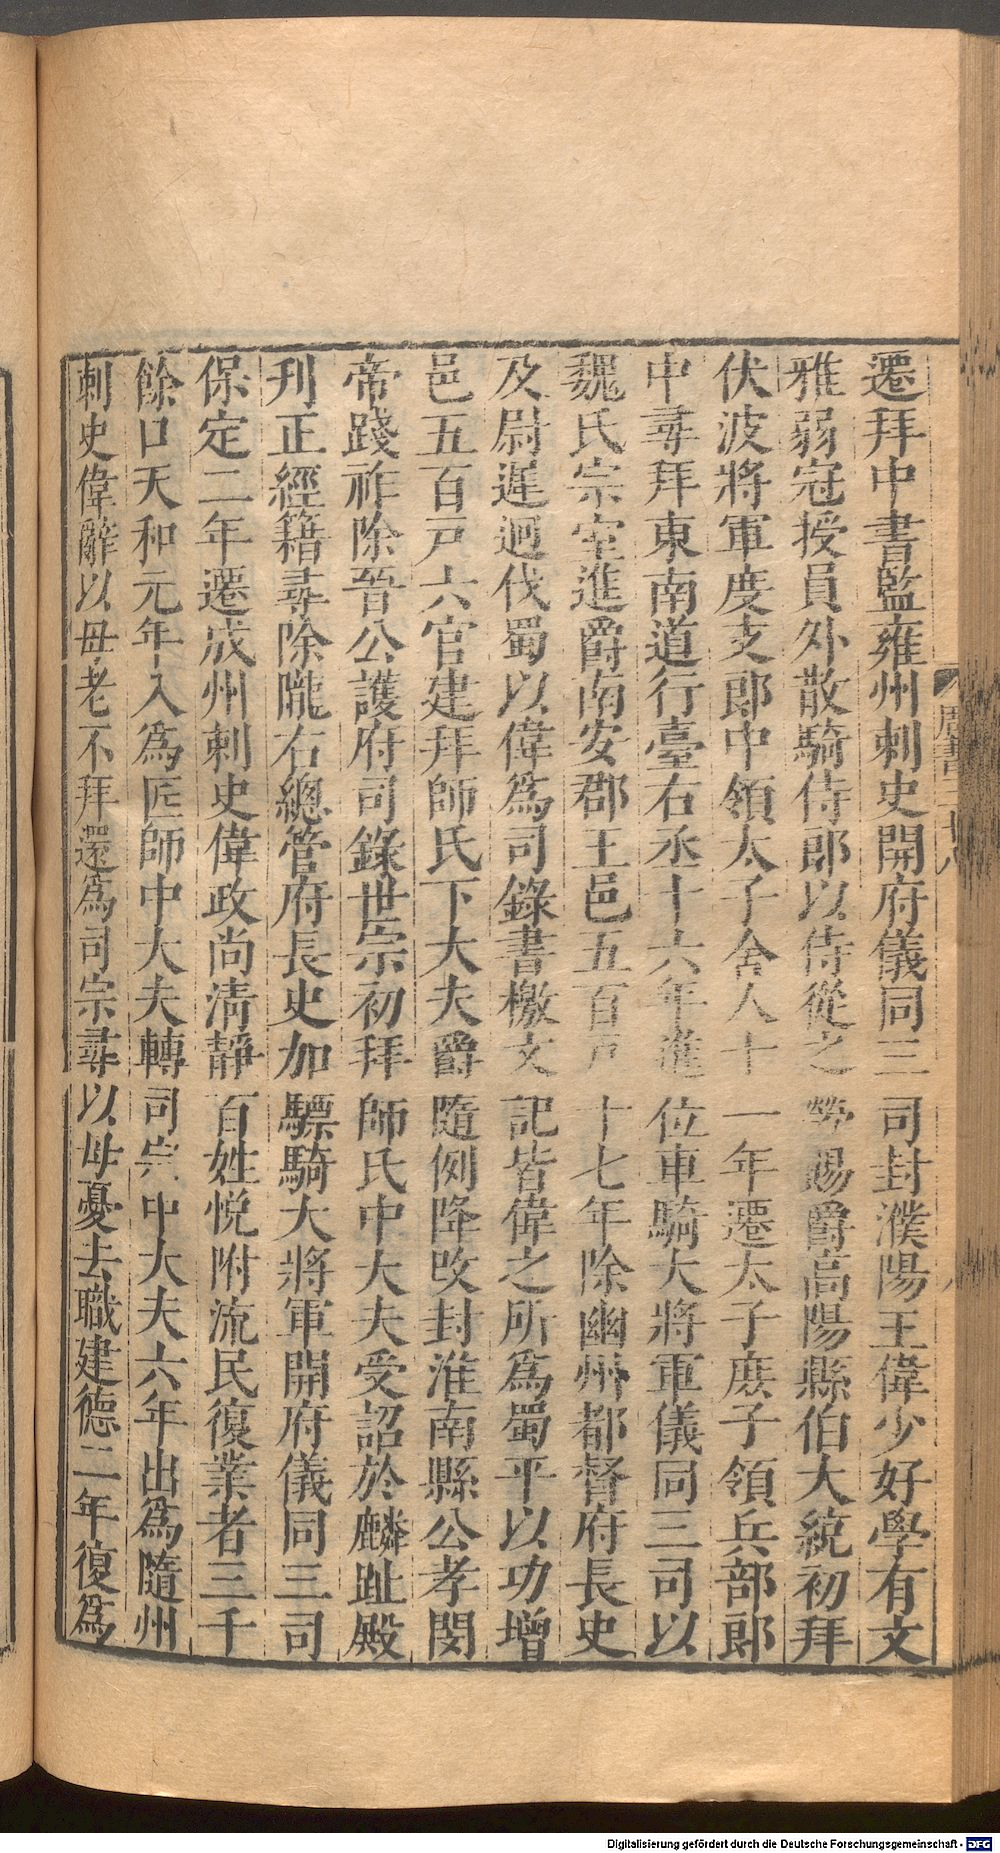 遷拜中書監雍州刺史開府儀同三司封濮陽王偉少好學有文
雅弱冠授員外散騎侍郎以侍從之勞賜爵高陽縣伯大統初拜
伏波將軍度支郎中領太子舍人十一年遷太子庶子領兵部郎
中尋拜東南道行臺右丞十六年進位車騎大將軍儀同三司以
魏氏宗室進爵南安郡王邑五百戸十七年除幽州都督府長史
及尉遲迥伐蜀以偉爲司錄書檄文記皆偉之所爲蜀平以功增
邑五百戸六官建拜師氏下大夫爵隨例降改封淮南縣公孝閔
帝踐祚除晉公護府司錄世宗初拜師氏中大夫受詔於麟趾殿
刋正經籍尋除隴右總管府長史加驃騎大將軍開府儀同三司
保定二年遷成州刺史偉政尚淸靜百姓悅附流民復業者三千
餘口天和元年入爲匠師中大夫轉司宗中大夫六年出爲隨州
刺史偉辭以母老不拜還爲司宗尋以母憂去職建德二年復爲
周書三十八
Digitalisierung gefördert durch die Deutsche Forschungsgemeinschaft - DFG